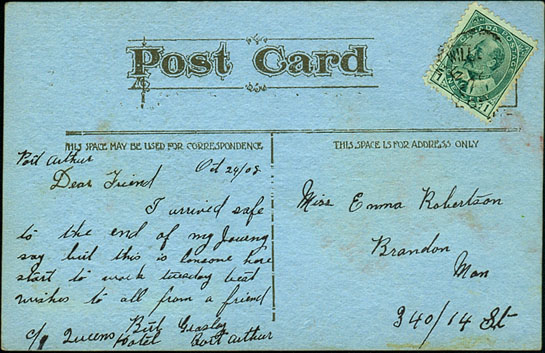 Post Card
THIS SPACE MAY BE USED FOR CORRESPONDENCE
THIS SPACE IS FOR ADDRESS ONLY
Port Arthur
Oct 24/08
Dear Friend
I urrived safe
to the end of my
say but this is lonsome here
start to work tuesday best
wishes to all from a friend
Birt
c/o Queens Hotel Port Arthur
Miss Emma Robertson
Brandon
Man
340/14 St